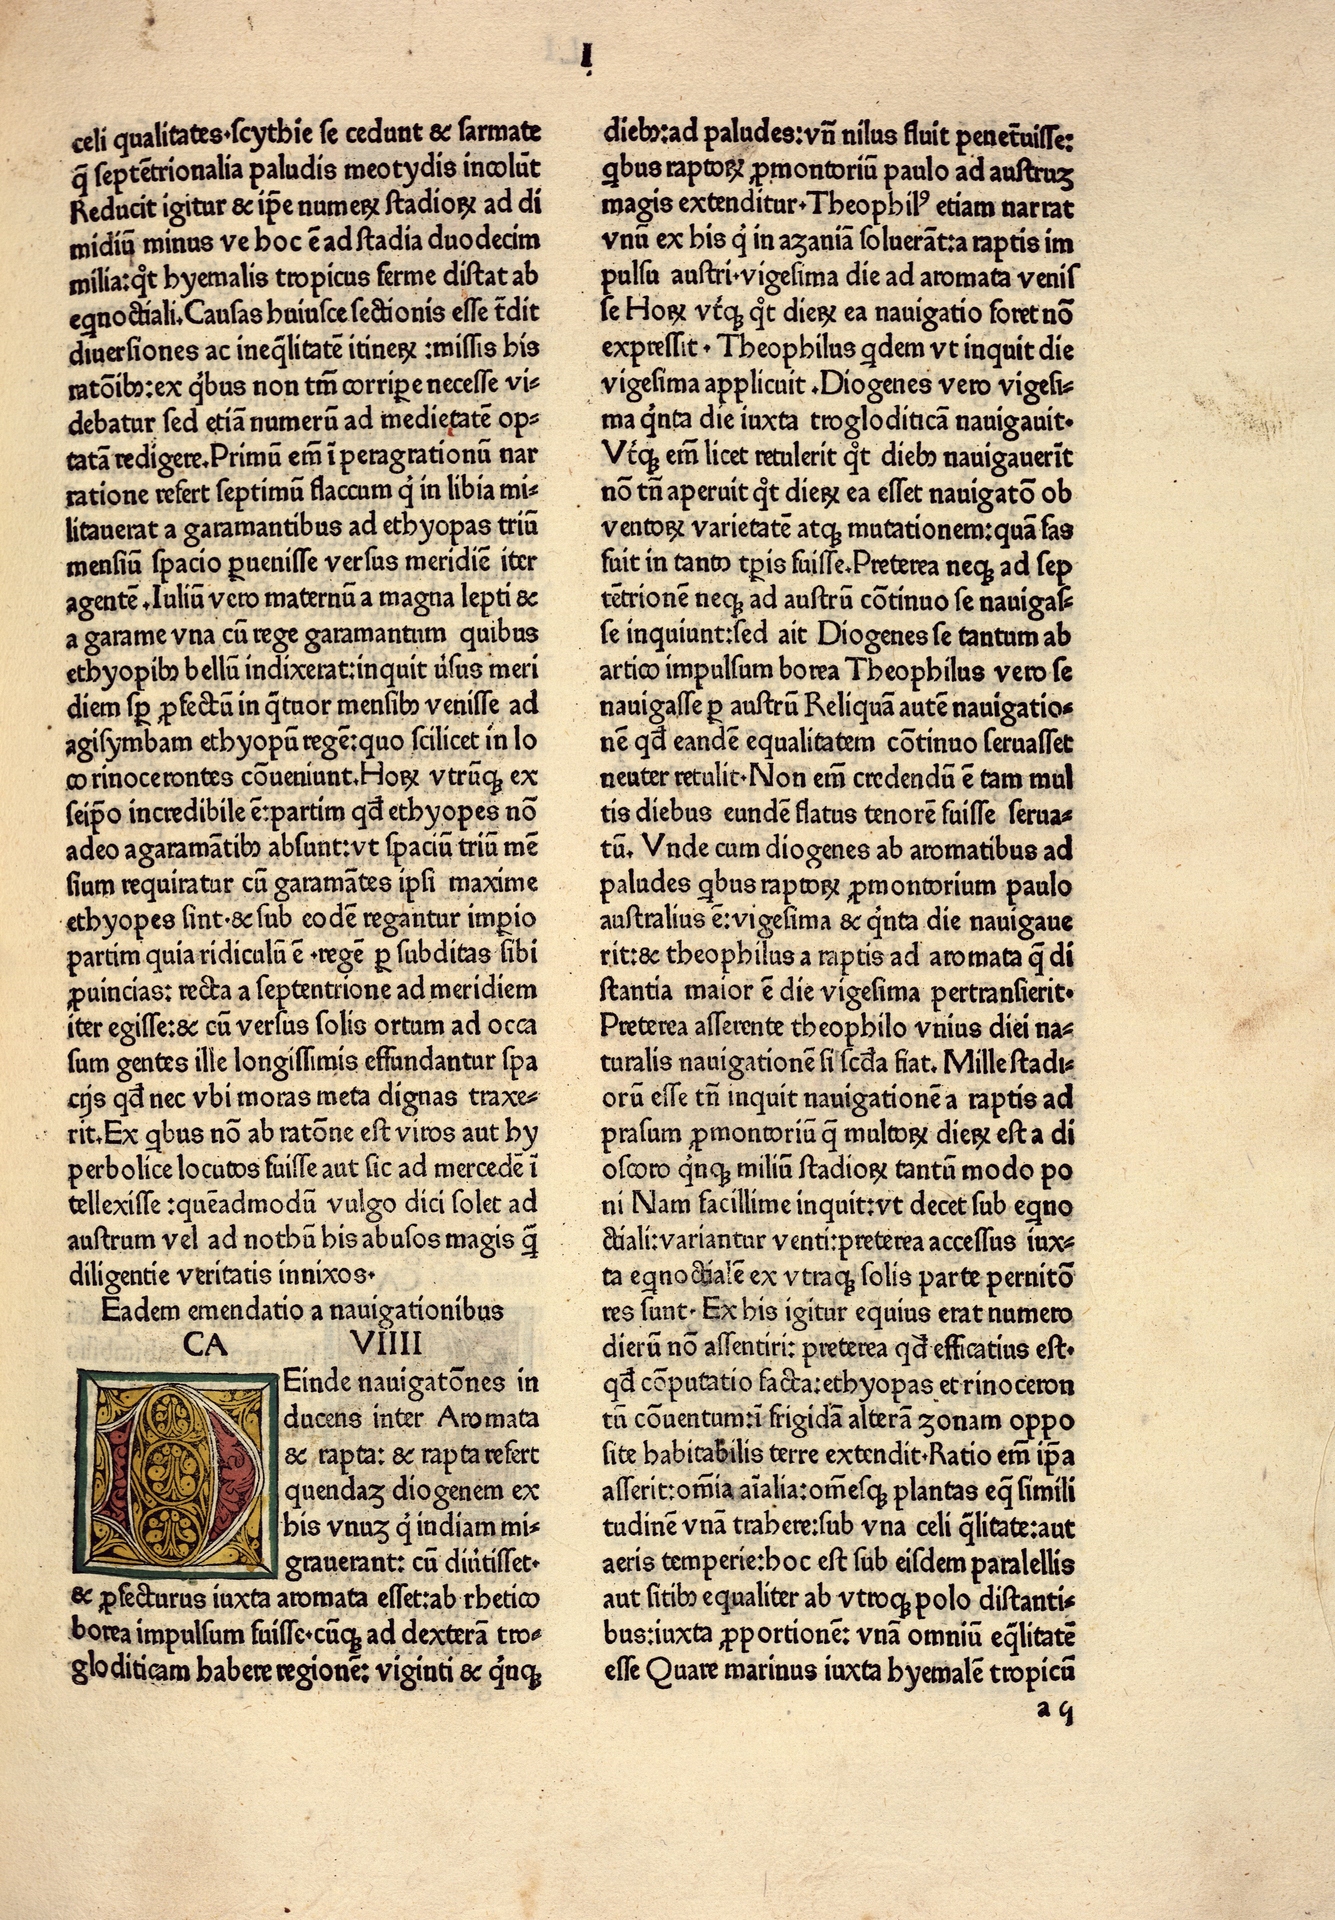 I
celi qualitates·scythie se cedunt & sarmate
q̄ septētrionalia paludis meotydis incolūt
Reducit igitur & ip̄e numeꝝ stadioꝝ ad di
midiū minus ve hoc ē ad stadia duodecim
milia:qͦt hyemalis tropicus ferme distat ab
eqnoctiali.Causas huiusce sectionis esse t̄dit
diuersiones ac ineq̄litatē itineꝝ :missis his
ratōibꝫ:ex qͥbus non tm̄ corripe necesse vi⸗
debatur sed etiā numerū ad medietatē op⸗
tatā redigere.Primū em̄ ī peragrationū nar
ratione refert septimū flaccum qͥ in libia mi⸗
litauerat a garamantibus ad ethyopas triū
mensiū spacio ꝑuenisse versus meridiē iter
agentē .Iuliū vero maternū a magna lepti &
a garame vna cū rege garamantum quibus
ethyopibꝫ bellū indixerat:inquit ūsus meri
diem sꝑ ꝓfectū in q̄tuor mensibꝫ venisse ad
agisymbam ethyopū regē:quo scilicet in lo
co rinocerontes cōueniunt.Hoꝝ vtrūqꝫ ex
seip̄o incredibile ē:partim qd̄ ethyopes nō
adeo agaramātibꝫ absunt:vt spaciū triū mē
sium requiratur cū garamātes ipsi maxime
ethyopes sint·& sub eodē regantur imꝑio
partim quia ridiculū ē ·regē ꝑ subditas sibi
ꝓuincias: recta a septentrione ad meridiem
iter egisse:& cū versus solis ortum ad occa
sum gentes ille longissimis effundantur spa
cijs qd̄ nec vbi moras meta dignas traxe⸗
rit.Ex qbus nō ab ratōne est viros aut hy
perbolice locutos fuisse aut sic ad mercedē ī
tellexisse :quēadmodū vulgo dici solet ad
austrum vel ad nothū his abusos magis q̄
diligentie veritatis innixos·
Eadem emendatio a nauigationibus
CA VIIII
Deinde nauigatōnes in
ducens inter Aromata
& rapta: & rapta refert
quendaꝫ diogenem ex
his vnuꝫ qͥ indiam mi⸗
grauerant: cū diūtisset·
& ꝓfecturus iuxta aromata esset:ab rhetico
borea impulsum fuisse·cūqꝫ ad dexterā tro⸗
gloditicam habere regionē: viginti & qͥnqꝫ
diebꝫ:ad paludes:vn̄ nilus fluit penet̄uisse:
qbus raptoꝝ ꝓmontoriū paulo ad austruꝫ
magis extenditur·Theophilꝰ etiam narrat
vnū ex his qͥ in aꝫaniā soluerāt:a raptis im
pulsu austri·vigesima die ad aromata venis
se Hoꝝ vt̓qꝫ qͦt dieꝝ ea nauigatio foret nō
expressit · Theophilus qdem vt inquit die
vigesima applicuit .Diogenes vero vigesi⸗
ma qͥnta die iuxta trogloditicā nauigauit·
Vt̓qꝫ em̄ licet retulerit qͦt diebꝫ nauigauerīt
nō tn̄ aperuit qͦt dieꝝ ea esset nauigatō ob
ventoꝝ varietatē atqꝫ mutationem:quā fas
fuit in tanto tꝑis fuisse.Preterea neqꝫ ad sep
tētrionē neqꝫ ad austrū cōtinuo se nauigas⸗
se inquiunt:sed ait Diogenes se tantum ab
artico impulsum borea Theophilus vero se
nauigasse ꝑ austrū Reliquā autē nauigatio⸗
nē qd̄ eandē equalitatem cōtinuo seruasset
neuter retulit·Non em̄ credendū ē tam mul
tis diebus eundē flatus tenorē fuisse serua⸗
tū. Vnde cum diogenes ab aromatibus ad
paludes qbus raptoꝝ ꝓmontorium paulo
australius ē:vigesima & qͥnta die nauigaue
rit:& theophilus a raptis ad aromata q̄ di
stantia maior ē die vigesima pertransierit·
Preterea asserente theophilo vnius diei na⸗
turalis nauigationē si scd̄a fiat. Mille stadi⸗
orū esse tn̄ inquit nauigationē a raptis ad
prasum ꝓmontoriū q̄ multoꝝ dieꝝ est a di
oscoro qͥnqꝫ miliū stadioꝝ tantū modo po
ni Nam facillime inquit:vt decet sub eqno
ctiali:variantur venti:preterea accessus iux⸗
ta eqnoctialē ex vtraqꝫ solis parte pernitō
res sunt· Ex his igitur equius erat numero
dierū nō assentiri: preterea qd̄ efficatius est·
qd̄ cōputatio facta:ethyopas et rinoceron
tū cōuentum:ī frigidā alterā ꝫonam oppo
site habitabilis terre extendit·Ratio em̄ ip̄a
asserit:om̄ia aīalia:om̄esqꝫ plantas eq̄ simili
tudinē vnā trahere:sub vna celi q̄litate:aut
aeris temperie:hoc est sub eisdem paralellis
aut sitibꝫ equaliter ab vtroqꝫ polo distanti⸗
bus:iuxta ꝓportionē: vnā omniū eq̄litatē
esse Quare marinus iuxta hyemalē tropicū